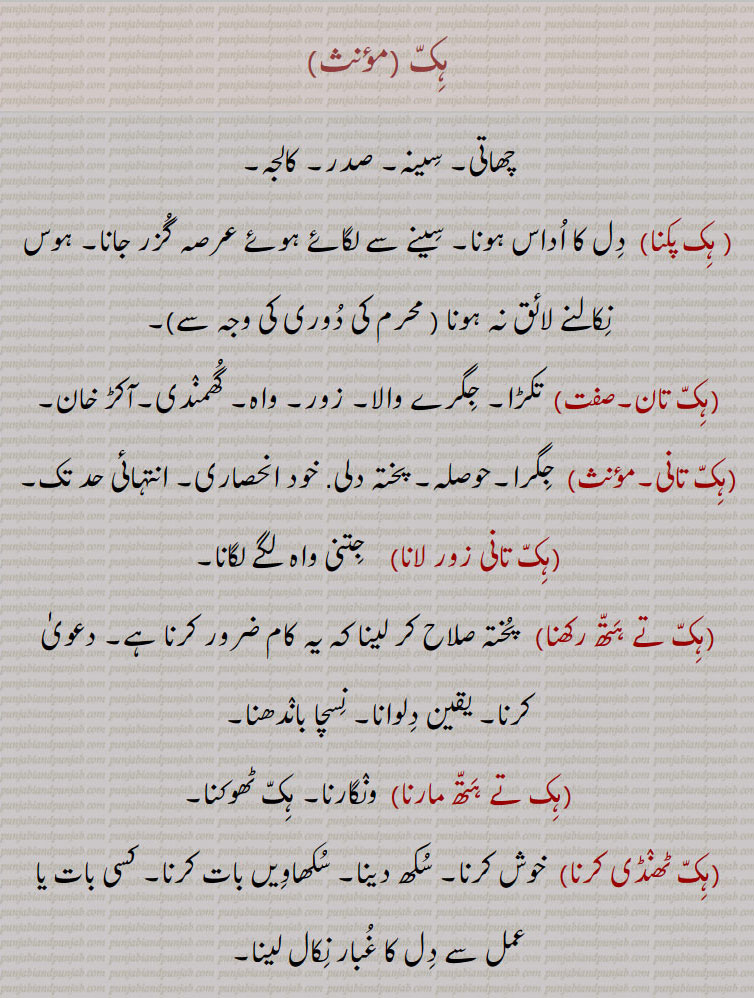 ہِکّ (مؤنث)
چھاتی۔ سِینہ۔ صدر۔ کالجہ۔
( ہِک پکنا) دِل کا اُداس ہونا۔ سِینے سے لگائے ہوئے عرصہ گُزر جانا۔ ہوس
نِکالنے لائق نہ ہونا ( محرم کی دُوری کی وجہ سے)۔
(ہِکّ تان۔صفت) تکڑا۔ جِگرے والا۔ زور۔ واہ۔ گُھمنْدی۔آکڑ خان۔
(ہِکّ تانی۔مؤنث) جِگرا۔حوصلہ۔ پختہ دلی. خود انحصاری۔ انتہائی حد تک۔
(ہِکّ تانی زور لانا) جِتنی واہ لگے لگانا۔
(ہِکّ تے ہَتھّ رکھنا) پُختہ صلاح کر لینا کہ یہ کام ضرور کرنا ہے۔ دعویٰ
کرنا۔ یقین دِلوانا۔ نِسچا بانْدھنا۔
(ہِک تے ہَتھّ مارنا) ونْگارنا۔ ہِکّ ٹھوکنا۔
(ہِکّ ٹھنْڈی کرنا) خوش کرنا۔ سُکھ دینا۔ سُکھاوِیں بات کرنا۔ کسی بات یا
عمل سے دِل کا غُبار نِکال لینا۔